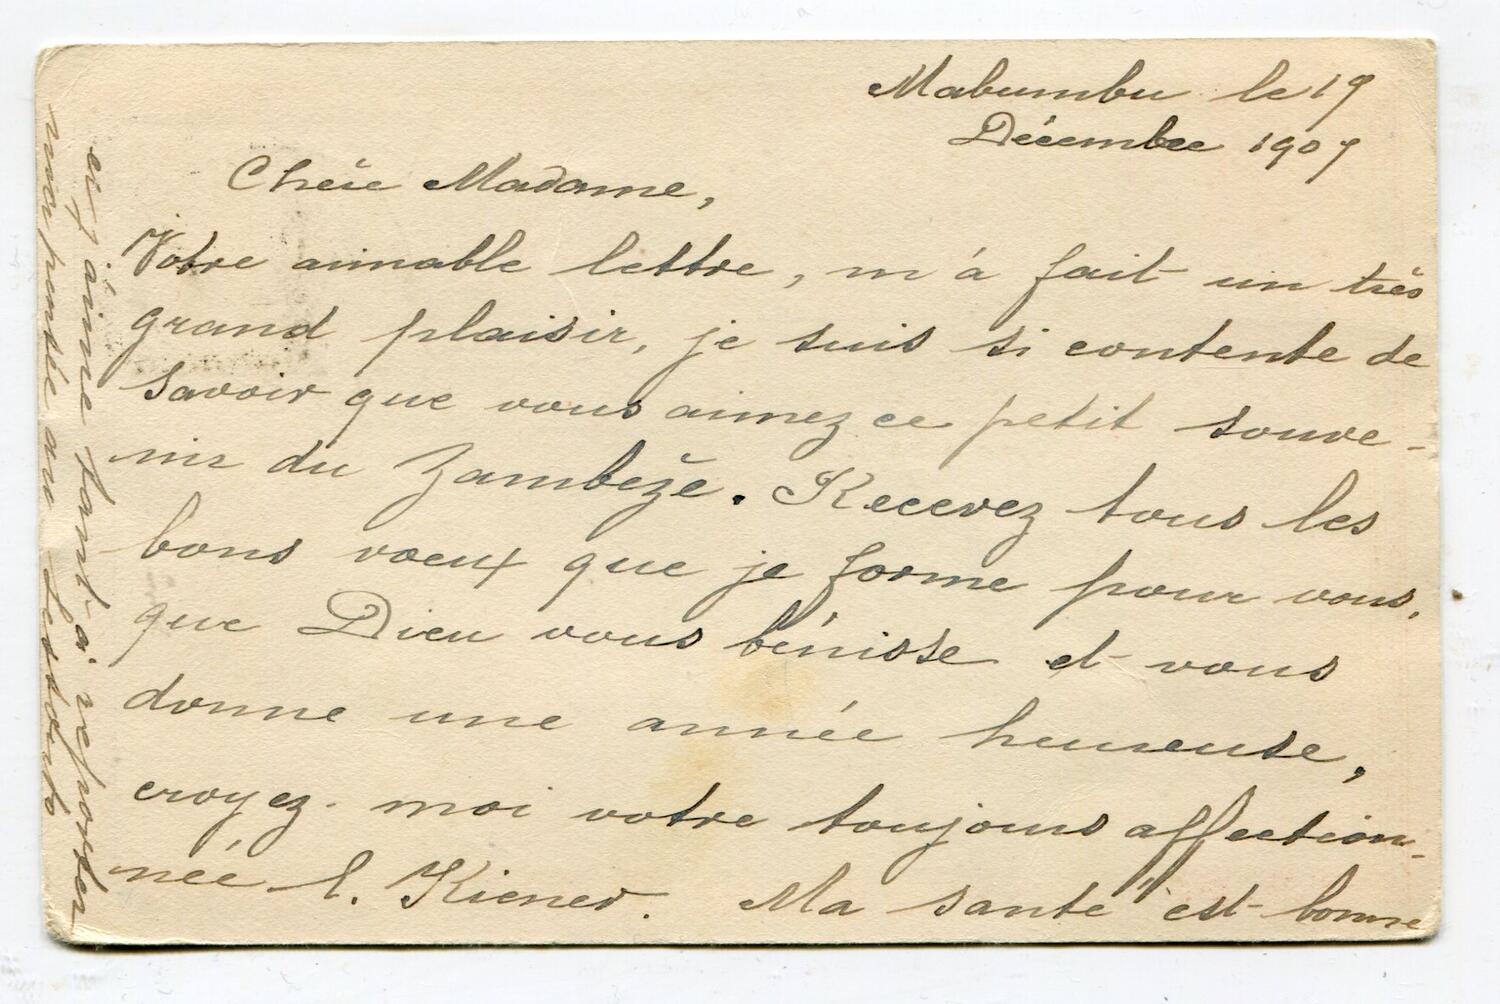 Mabumbu le 19
Décembre 1907
Chère Madame,
Votre aimable lettre, m'a fait un très
grand plaisir, je suis si contente de
savoir que vous aimez ce petit souve-
nir du Zambèze. Recevez tous les
bons vœux que je forme pour vous,
que Dieu vous bénisse et vous
donne une année heureuse,
croyez-moi votre toujours affection-
née L. Kiener. Ma santé est bonne
et j'aime tant à reporter
ma pensée au Lessouto